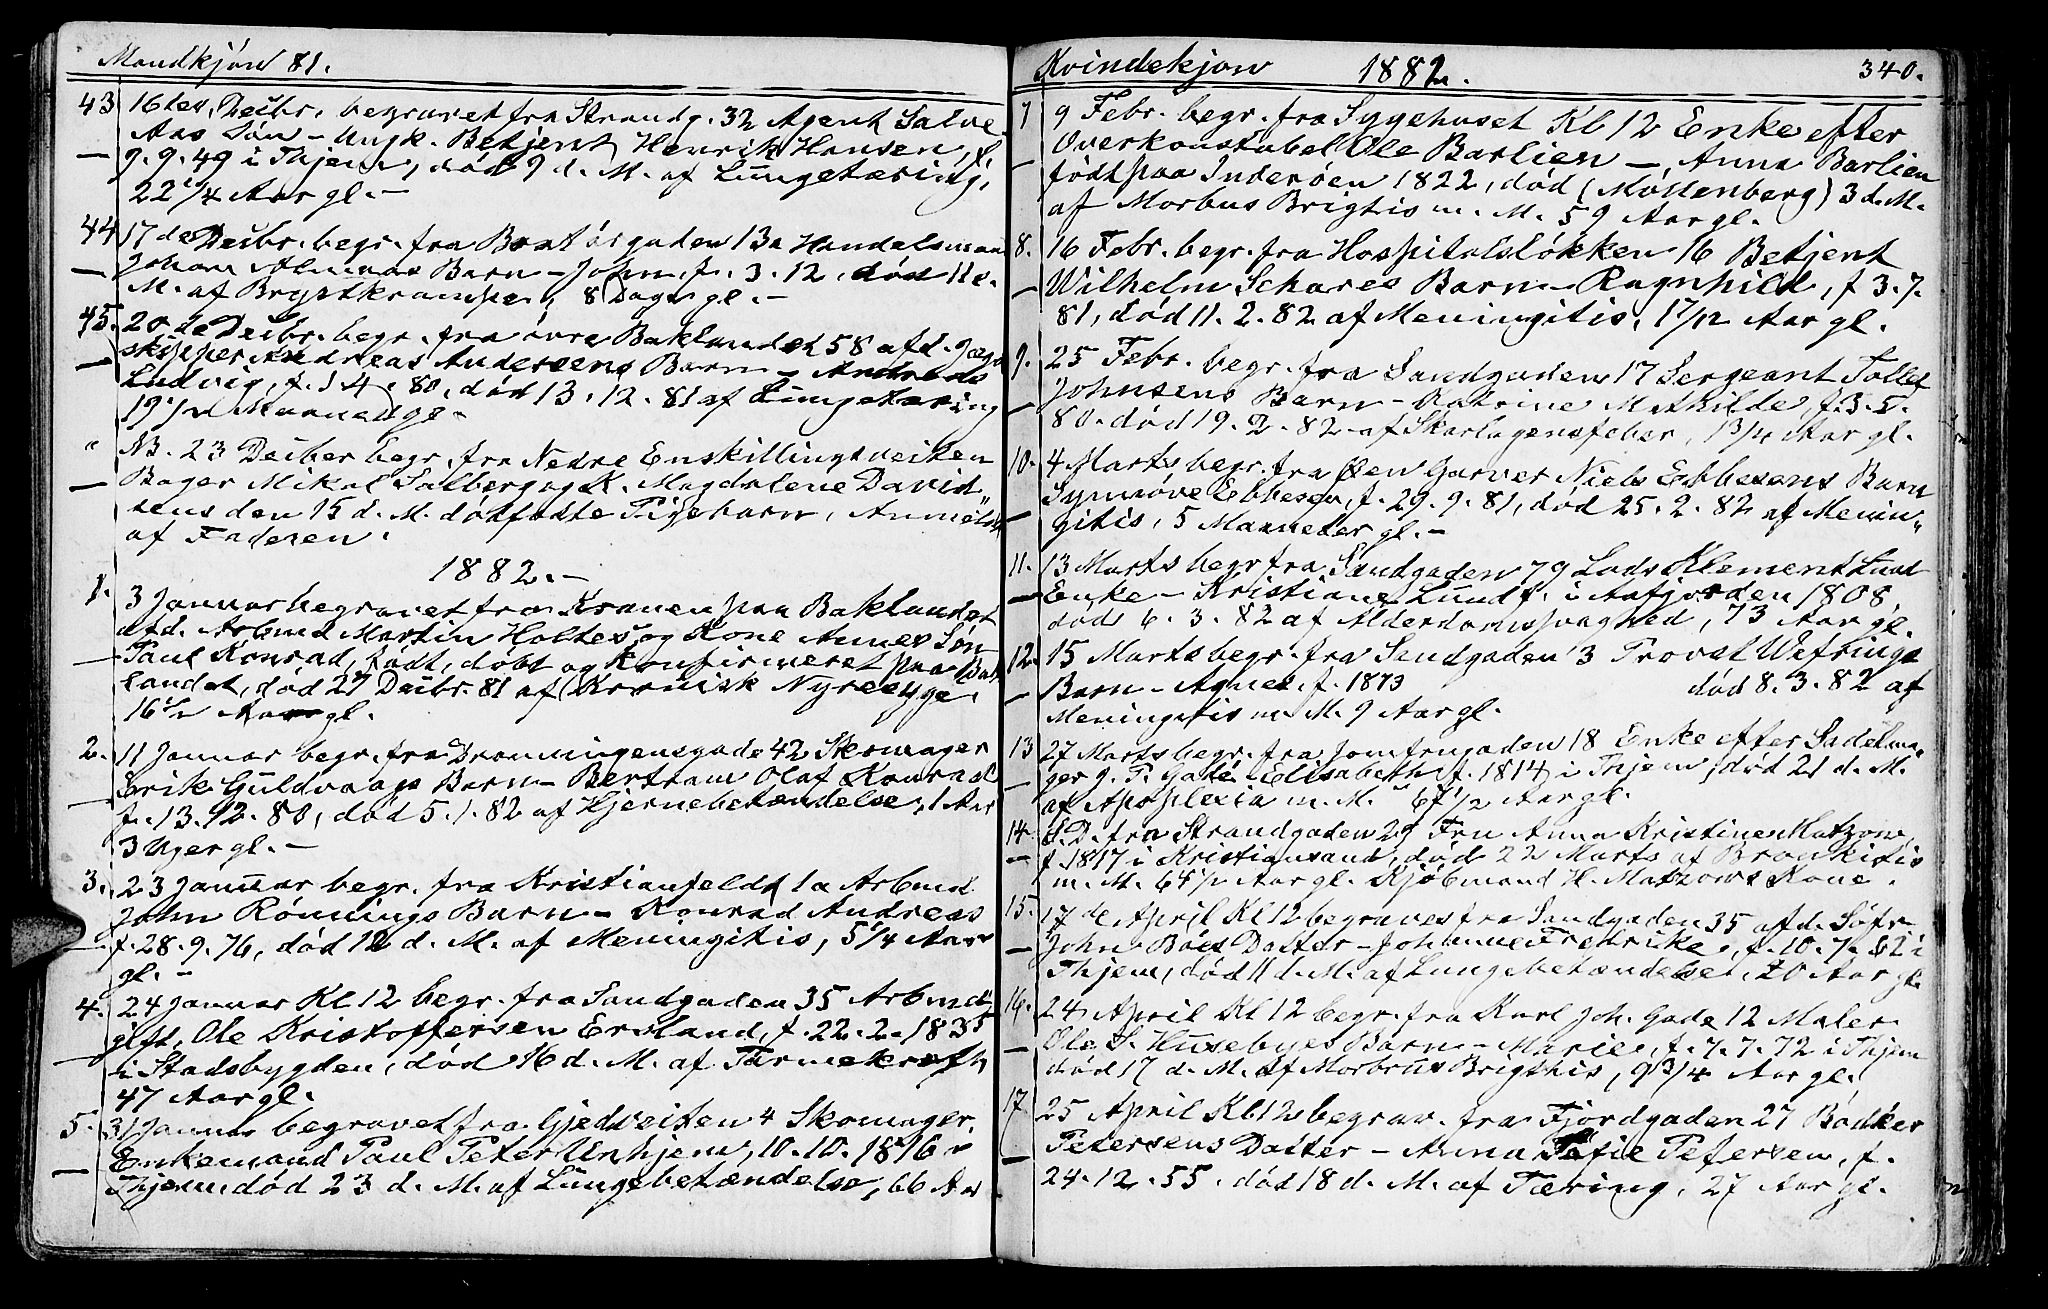 Mandkjön 81.
43 16 des. Decbr. begravet fra Strandg. 32 Agent Salve
Aas Sön - Ungk. Betjent Henrik Hansen, f.
9.9.49 i Thjem, död 9 d. M. af Lungetæring,
22 1/4 Aar gl. -
44 17 de Decbr. begr. fra Bratörgaden 13a Handelsmand
Johan Barn - John, f. 3.12. död 11 d.
M. af Brystkrampe, 8 Dage gl. -
45. 20 de Decbr. begr. fra övre Baklandet 58 afd.
skipper Andreas Andersens Barn - Andreas
Ludvig, f. 1.4.80, död 13.12.81 af Lungetæring
19 1/2 Maaned gl. -
" NB. 23 Decber begr. fra Nedre Enskillingsveiten
Bager Mikal Solberg og K. Magdalene David-
sens den 15 d. M. dödfödte Pigebarn, Anmeldt
af Faderen.
1882. -
1. 3 Januar begravet fra Kranen paa Baklandet
afd. Arbmd Martin Holtes og Kone Annes Sön
Paul Konrad, födt, döbt og konfirmeret paa Bak
landet, död 27 Decbr. 81 af Kronisk Nyresyge.
16 1/2 Aar gl.
2. 11 Januar begr. fra Dronningensgade 42 Skomager
Erik Guldvaags Barn - Bertram Olaf Konrad
f. 13.12.80, död 5.1.82 af Hjernebetændelse, 1 Aar
3 Uger gl. -
3. 23 Januar begr. fra Kristianfeldt 1a Arbmd.
John Rönnings Barn - Konrad Andreas
f. 28.9.76, död 12 d. M. af Meningitis, 5 1/4 Aar
gl. -
4. 24 Januar Kl 12 begr. fra Sandgaden 35 Arbmd
gift, Ole Kristoffersen Ersland, f. 22.2.1835
i Stadsbygden, död 16 d. M. af Tarmekræft,
47 Aar gl.
5. 31 Januar begravet fra Gjedveiten 4 Skomager.
Enkemand Paul Peter Unhjem, 10.10.1816 i
Thjem död 23 d. M. af Lungebetændelse, 66 Aar
Kvindekjön 1882. 340.
7 9 Febr. begr. fra Sygehuset Kl 12 Enke efter
Overkonstabel Ole Barlien -, Anna Barlien
födt paa Inderöen 1822, död (Möllenberg) 3 d. M.
af Morbus Brigtis m. M. 59 Aar gl.
8. 16 Febr. begr. fra Hospitalslökken 16 Betjent
Wilhelm Schares Barn - Ragnhild, f 3.7.
81, död 11.2.82 af Meningitis, 1 7/12 Aar gl.
9. 25 Febr. begr. fra Sandgaden 17 Sergeant Tollef
Johnsens Barn - Katrine Mathilde, f. 3.5.
80. död 19.2.82 af Skarlagensfeber, 1 3/4 Aar gl.
10. 4 Marts begr. fra Garver Niels Ebbesens Barn
Synnöve Ebbesen, f. 29.9.81, död 25.2.82 af Menin-
gitis, 5 Maaneder gl. -
11. 13 Marts begr fra Sandgaden 79 Lods Klement Lund
Enke - Kristiane Lund f. i Aafjorden 1808,
död 6.3.82 af Alderdomssvaghed, 73 Aar gl.
12. 15 Marts begr. fra Sandgaden 3 Provst Wefrings
Barn - Agnes, f. 1873 död 8.3.82 af
Meningitis m. M. 9 Aar gl.
13 27 Marts begr. fra Jomfrugaden 18 Enke efter Sadelma-
ger J. P. Gade - Elisabeth f. 1814 i Thjem, död 21 d. M.
af Apoplexia m. M. 67 1/2 Aar gl.
14. S. D. fra Strandgaden 29 Fru Anna Kristine Matzow,
f. 1817 i Kristiansand, död 22 Marts af Bronkitis
m. M. 64 1/2 Aar gl. Kjöbmand H. Matzows Kone.
15. 17 de April Kl 12 begraves fra Sandgaden 35 afd. Söfr.
John Böes Datter - Johanne Fredrike, f. 10.7.62 i
Thjem, död 11 d. M. af Lungebetændelse, 20 Aar gl.
16. 24 April Kl 12 begr. fra Karl Joh. Gade 12 Maler
Ole S. Husebyes Barn - Marie, f. 7.7.72 i Thjem
död 17 d. M. af Morbrus Brigthis, 9 3/4 Aar gl.
17 25 April Kl 12 begrav. fra Fjordgaden 27 Bödker
Petersens Datter - Anna Sofie Petersen, f.
24.12.55. död 18 d. M. af Tæring, 27 Aar gl.